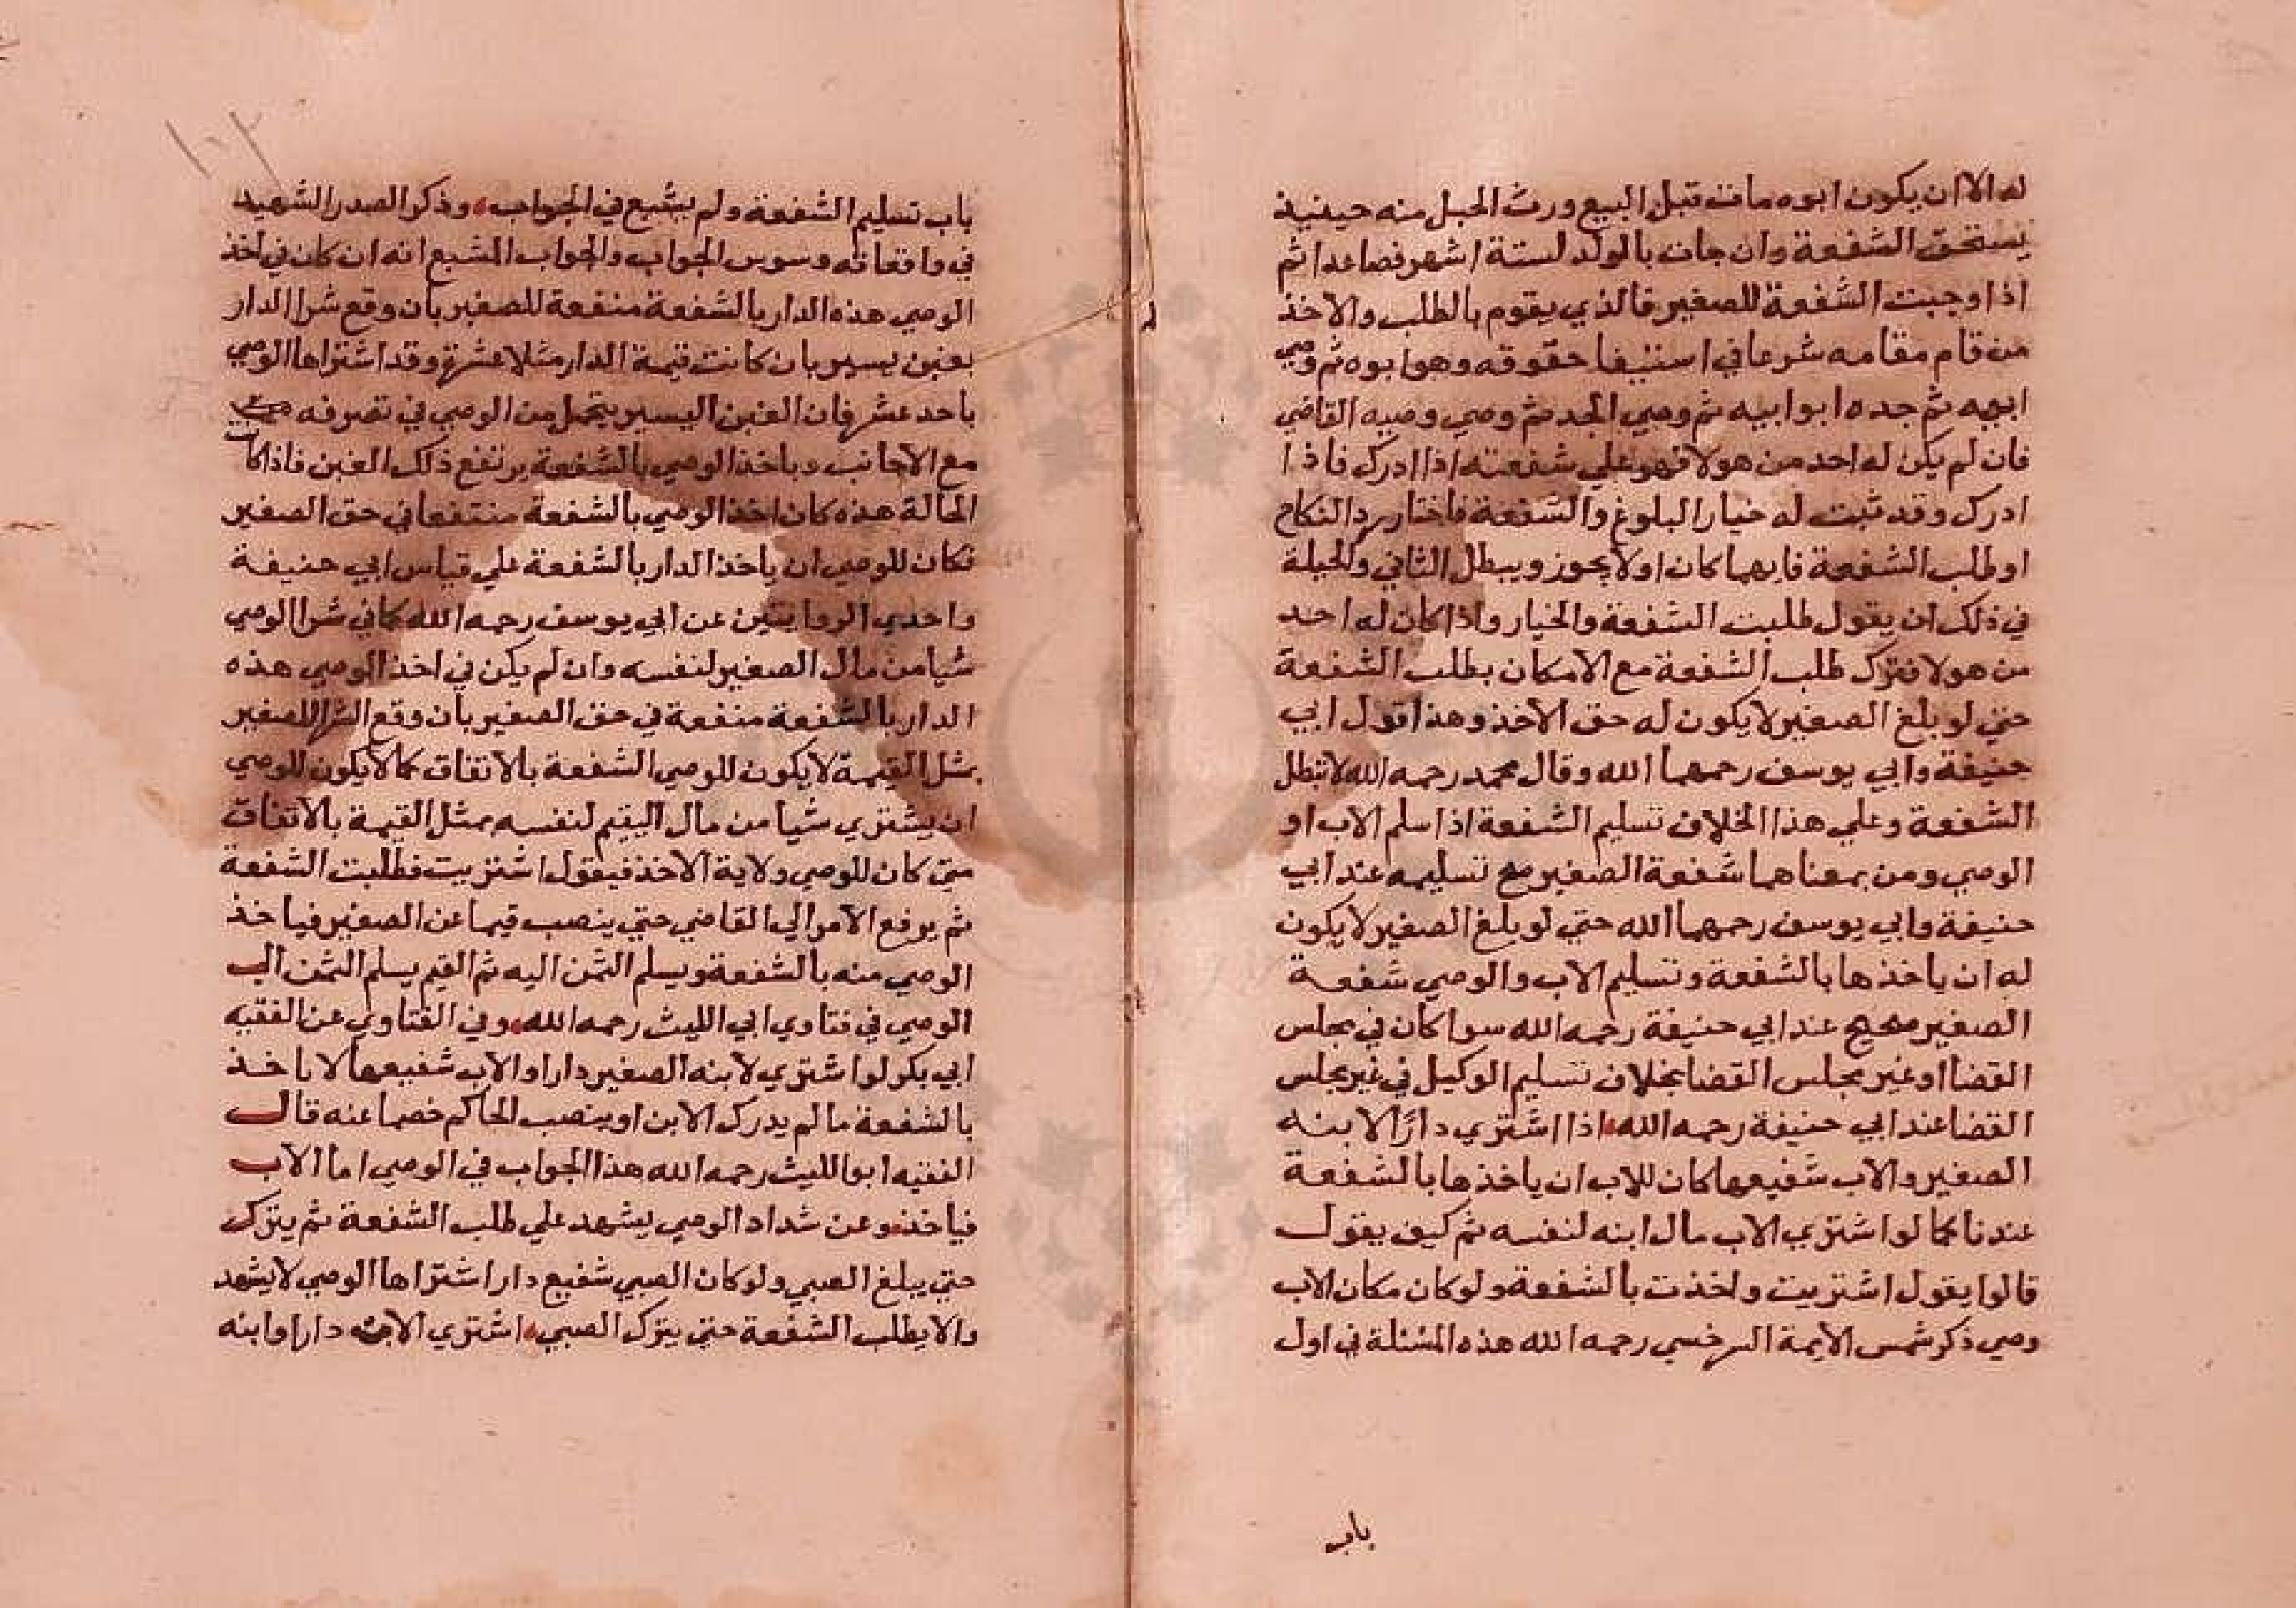 له الا ان يكون ابوه مات قبل البيع ورث الحبل منه حينيذ
يستحق الشفعة وان جات بالولد لستة اشهر فصاعدا ثم
اذا وجبت الشفعة للصغير فالذي يقوم بالطلب والاخذ
من قام مقامه شرعا في استيفا حقوقه وهو ابوه ثم وصي
ابيه ثم جده ابو ابيه ثم وصي الجد ثم وصي وصيه القاضي
فان لم يكن له احد من هولا فهو علي شفعته اذا ادرك فاذا
ادرك وقد ثبت له خيار البلوغ والشفعة فاختار رد النكاح
او طلب الشفعة فايهما كان اولا يجوز ويبطل الثاني والحيلة
في ذلك ان يقول طلبت الشفعة والخيار واذا كان له احد
من هولا فترك طلب الشفعة مع الامكان بطلب الشفعة
حتي لو بلغ الصغير لا يكون له حق الاخذ وهذا قول ابي
حنيفة وابي يوسف رحمهما الله وقال محمد رحمه الله لا تبطل
الشفعة وعلي هذا الخلاف تسليم الشفعة اذا سلم الاب او
الوصي ومن بمعناهما شفعة الصغير صح تسليمه عند ابي
حنيفة وابي يوسف رحمهما الله حتي لو بلغ الصغير لا يكون
له ان ياخذها بالشفعة وتسليم الاب والوصي شفعة
الصغير صحيح عند ابي حنيفة رحمه الله سوا كان في مجلس
القضا او غير مجلس القضا بخلاف تسليم الوكيل في غير مجلس
القضا عند ابي حنيفة رحمه الله اذا اشتري دارًا لابنه
الصغير والاب شفيعها كان للاب ان ياخذها بالشفعة
عندنا كما لو اشتري الاب مال ابنه لنفسه ثم كيف يقول
قالوا يقول اشتريت واخذت بالشفعة ولو كان مكان الاب
وصي ذكر شمس الايمة السرخسي رحمه الله هذه المسئلة في اول
باب
باب تسليم الشفعة ولم يشبع في الجواب وذكر الصدر الشهيد
في واقعاته وسوس الجواب والجواب المشبع انه ان كان في اخذ
الوصي هذه الدار بالشفعة منفعة للصغير بان وقع شرا الدار
بغبن يسير بان كانت قيمة الدار مثلا عشرة وقد اشتراها الوصي
باحد عشر فان الغبن اليسير يتحمل من الوصي في تصرفه
مع الاجانب وباخذ الوصي بالشفعة يرتفع ذلك الغبن فاذا كانت
الحالة هذه كان اخذ الوصي بالشفعة منتفعا في حق الصغير
فكان للوصي ان ياخذ الدار بالشفعة علي قياس ابي حنيفة
واحدي الروايتين عن ابي يوسف رحمه الله كما في شرا الوصي
شيا من مال الصغير لنفسه وان لم يكن في اخذ الوصي هذه
الدار بالشفعة منفعة في حق الصغير بان وقع الشرا للصغير
بمثل القيمة لا يكون للوصي الشفعة بالاتفاق كما لا يكون للوصي
ان يشتري شيا من مال اليتيم لنفسه بمثل القيمة بالاتفاق
متي كان للوصي ولاية الاخذ فيقول اشتريت فطلبت الشفعة
ثم يرفع الامر الي القاضي حتي ينصب قيما عن الصغير فياخذ
الوصي منه بالشفعة ويسلم الثمن اليه ثم القيم يسلم الثمن الي
الوصي في فتاوي ابي الليث رحمه الله وفي الفتاوي عن الفقيه
ابي بكر لو اشتري لابنه الصغير دارا والاب شفيعها لا ياخذ
بالشفعة ما لم يدرك الابن او ينصب الحاكم خصما عنه قال
الفقيه ابو الليث رحمه الله هذا الجواب في الوصي اما الاب
فياخذ وعن شداد الوصي يشهد علي طلب الشفعة ثم يترك
حتي يبلغ الصبي ولو كان الصبي شفيع دار اشتراها الوصي لا يشهد
ولا يطلب الشفعة حتي يترك الصبي اشتري الاب دارا وابنه